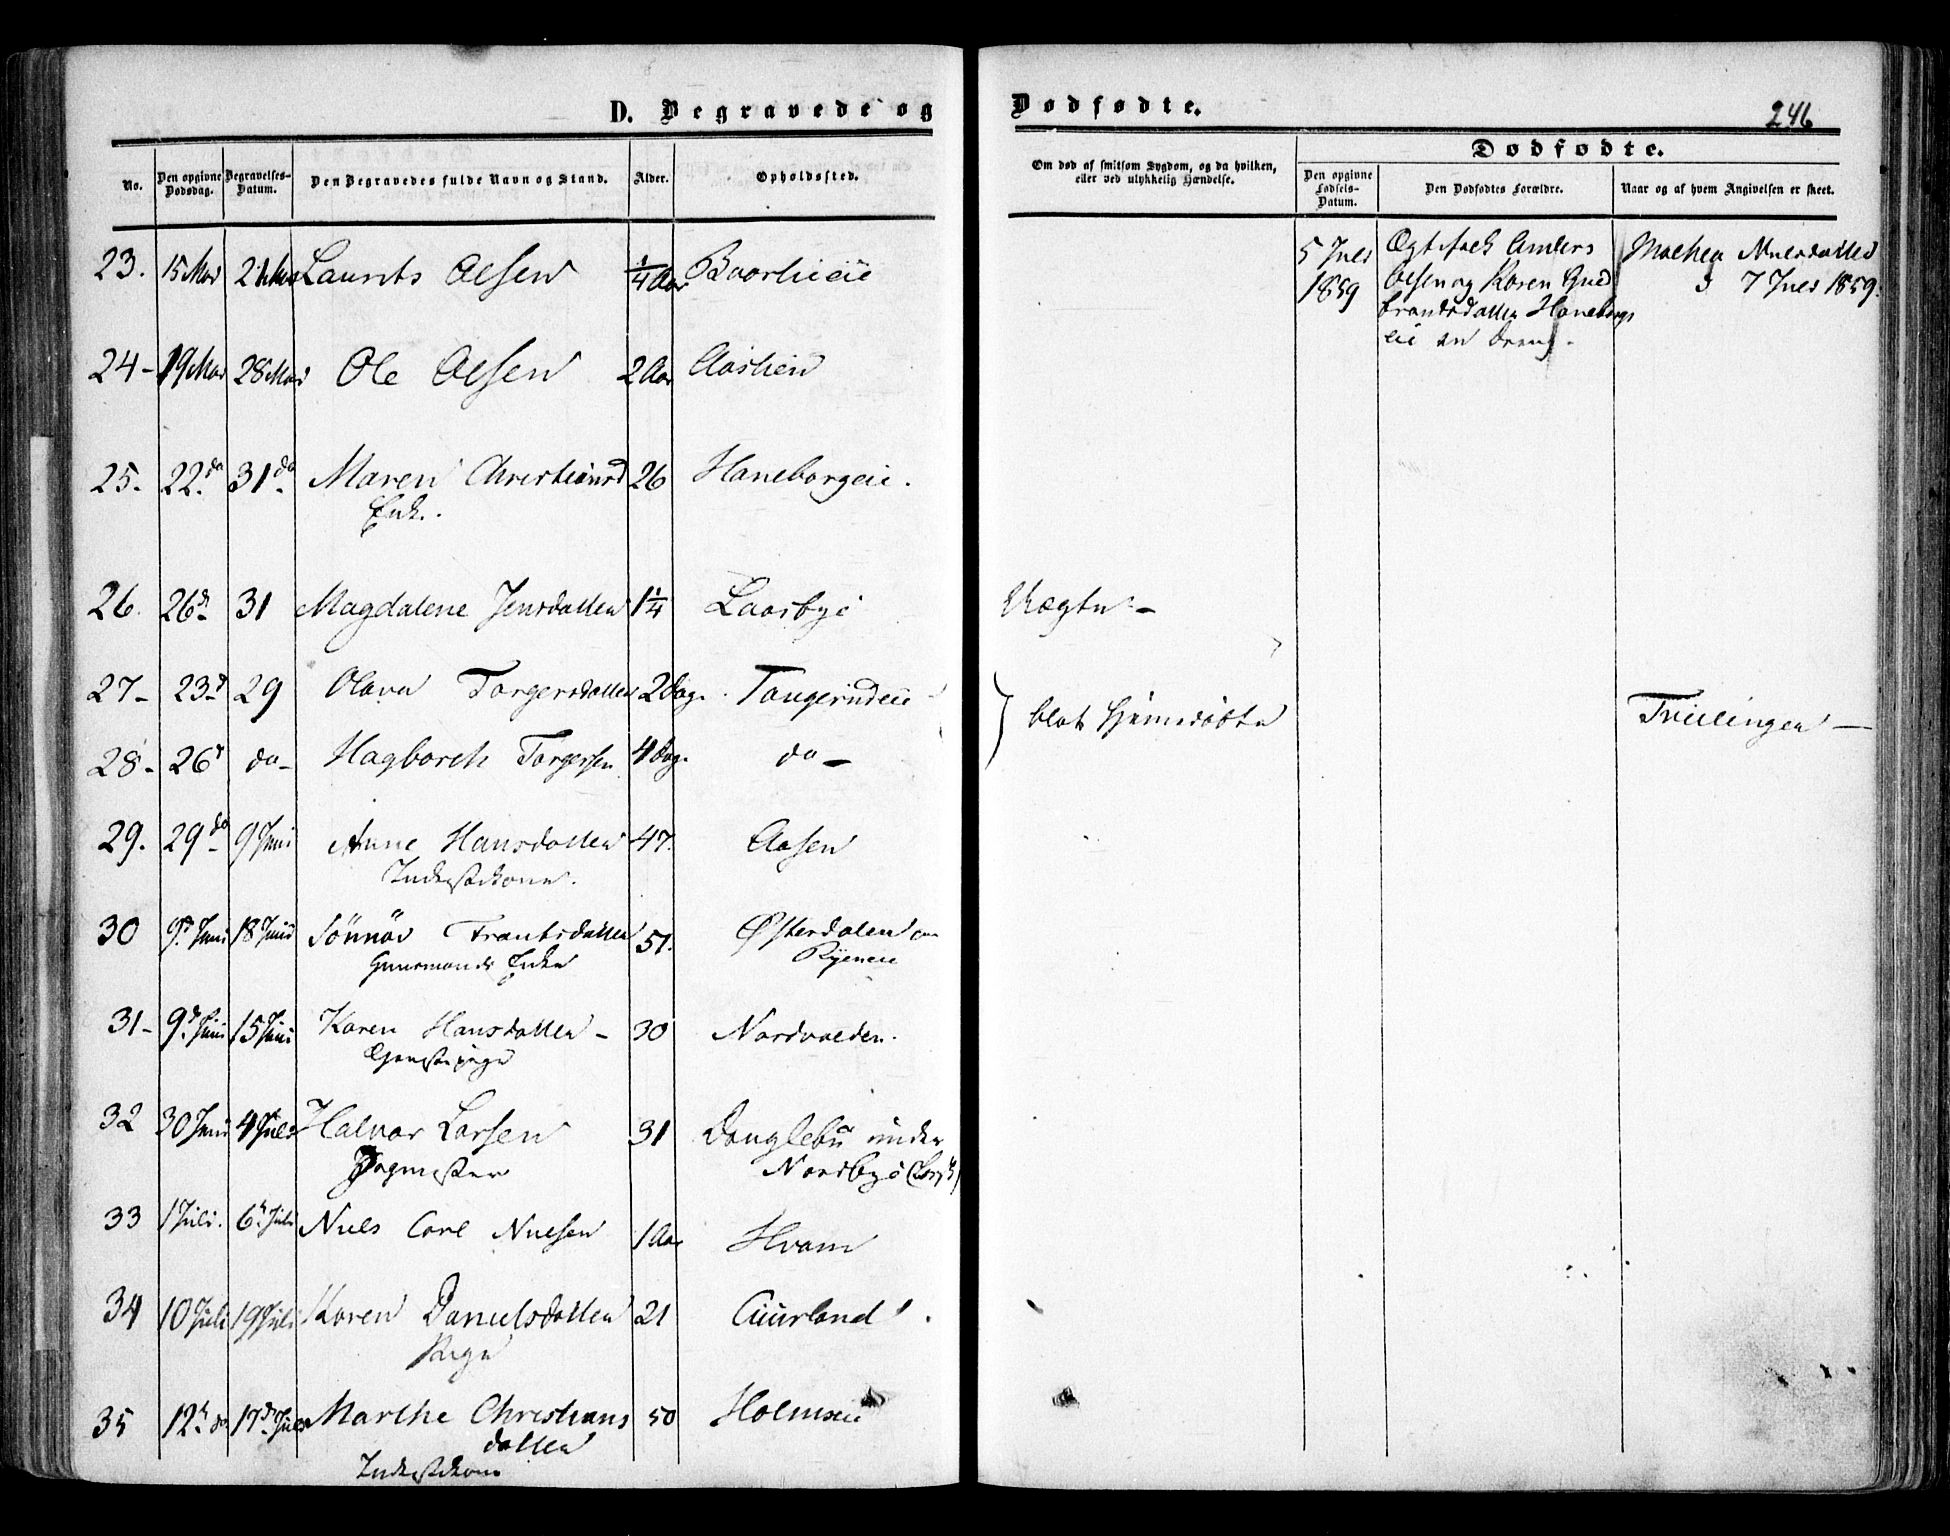 D. Begravede og Dødfødte.
246
No.
Den opgivne Dødsdag.
Begravelses-Datum.
Den Begravedes fulde Navn og Stand.
Alder.
Opholdssted.
Om død af smitsom Sygdom, og da hvilken,
eller ved ulykkelig Hændelse.
Dødfødte.
Den opgivne Fødsels-Datum.
Den Dødfødtes Forældre.
Naar og af hvem Angivelsen er skeet.
23. 15 Mai 21 Mai Laurits Olsen ¼ Aar
5 Juli 1859
Ægtefolk Anders
Olsen og Karen Gud
brandsdatter Haneborgs
eie en Dreng.
7 Juli 1859.
24 - 19 Mai 28 Mai Ole Olsen 2 Aar Aaslien
25. 22 do 31 do Maren Christiansd 26 Haneborgeie.
Enke.
26. 26 d 31 Magdalene Jensdatter 1¼ Laarbye
27 - 23 d 29 Olava Torgersdatter 2 Dage Tangerudeie
Tvillinger —
28 - 26 d do - Hagbarth Torgersen 4 Dag. do -
29. 29 do 9 Juni Anne Hansdatter 47. Aasen
Inderstkone.
30 9 d. Juni 18 Juni Sönnöv Frantsdatter 51. Østerdalen
Gaardmands Enke Ryeneie
31 - 9 d. Juni 15 Juni Karen Hansdatter - 30 Nordvolden.
Tjenestepige
32 30 Juni 4 Juli Halvor Larsen 31 Danglebu under
Nordbye
33 1 Juli. 6 Juli Niels Carl Nielsen 1 Aar Hvam
34 10 Juli 19 Juli Karen Danielsdatter 21 Cuurland.
Pige
35 12 do 17 d. Juli Marthe Christians 50 Holmseie
datter
Inderstkone